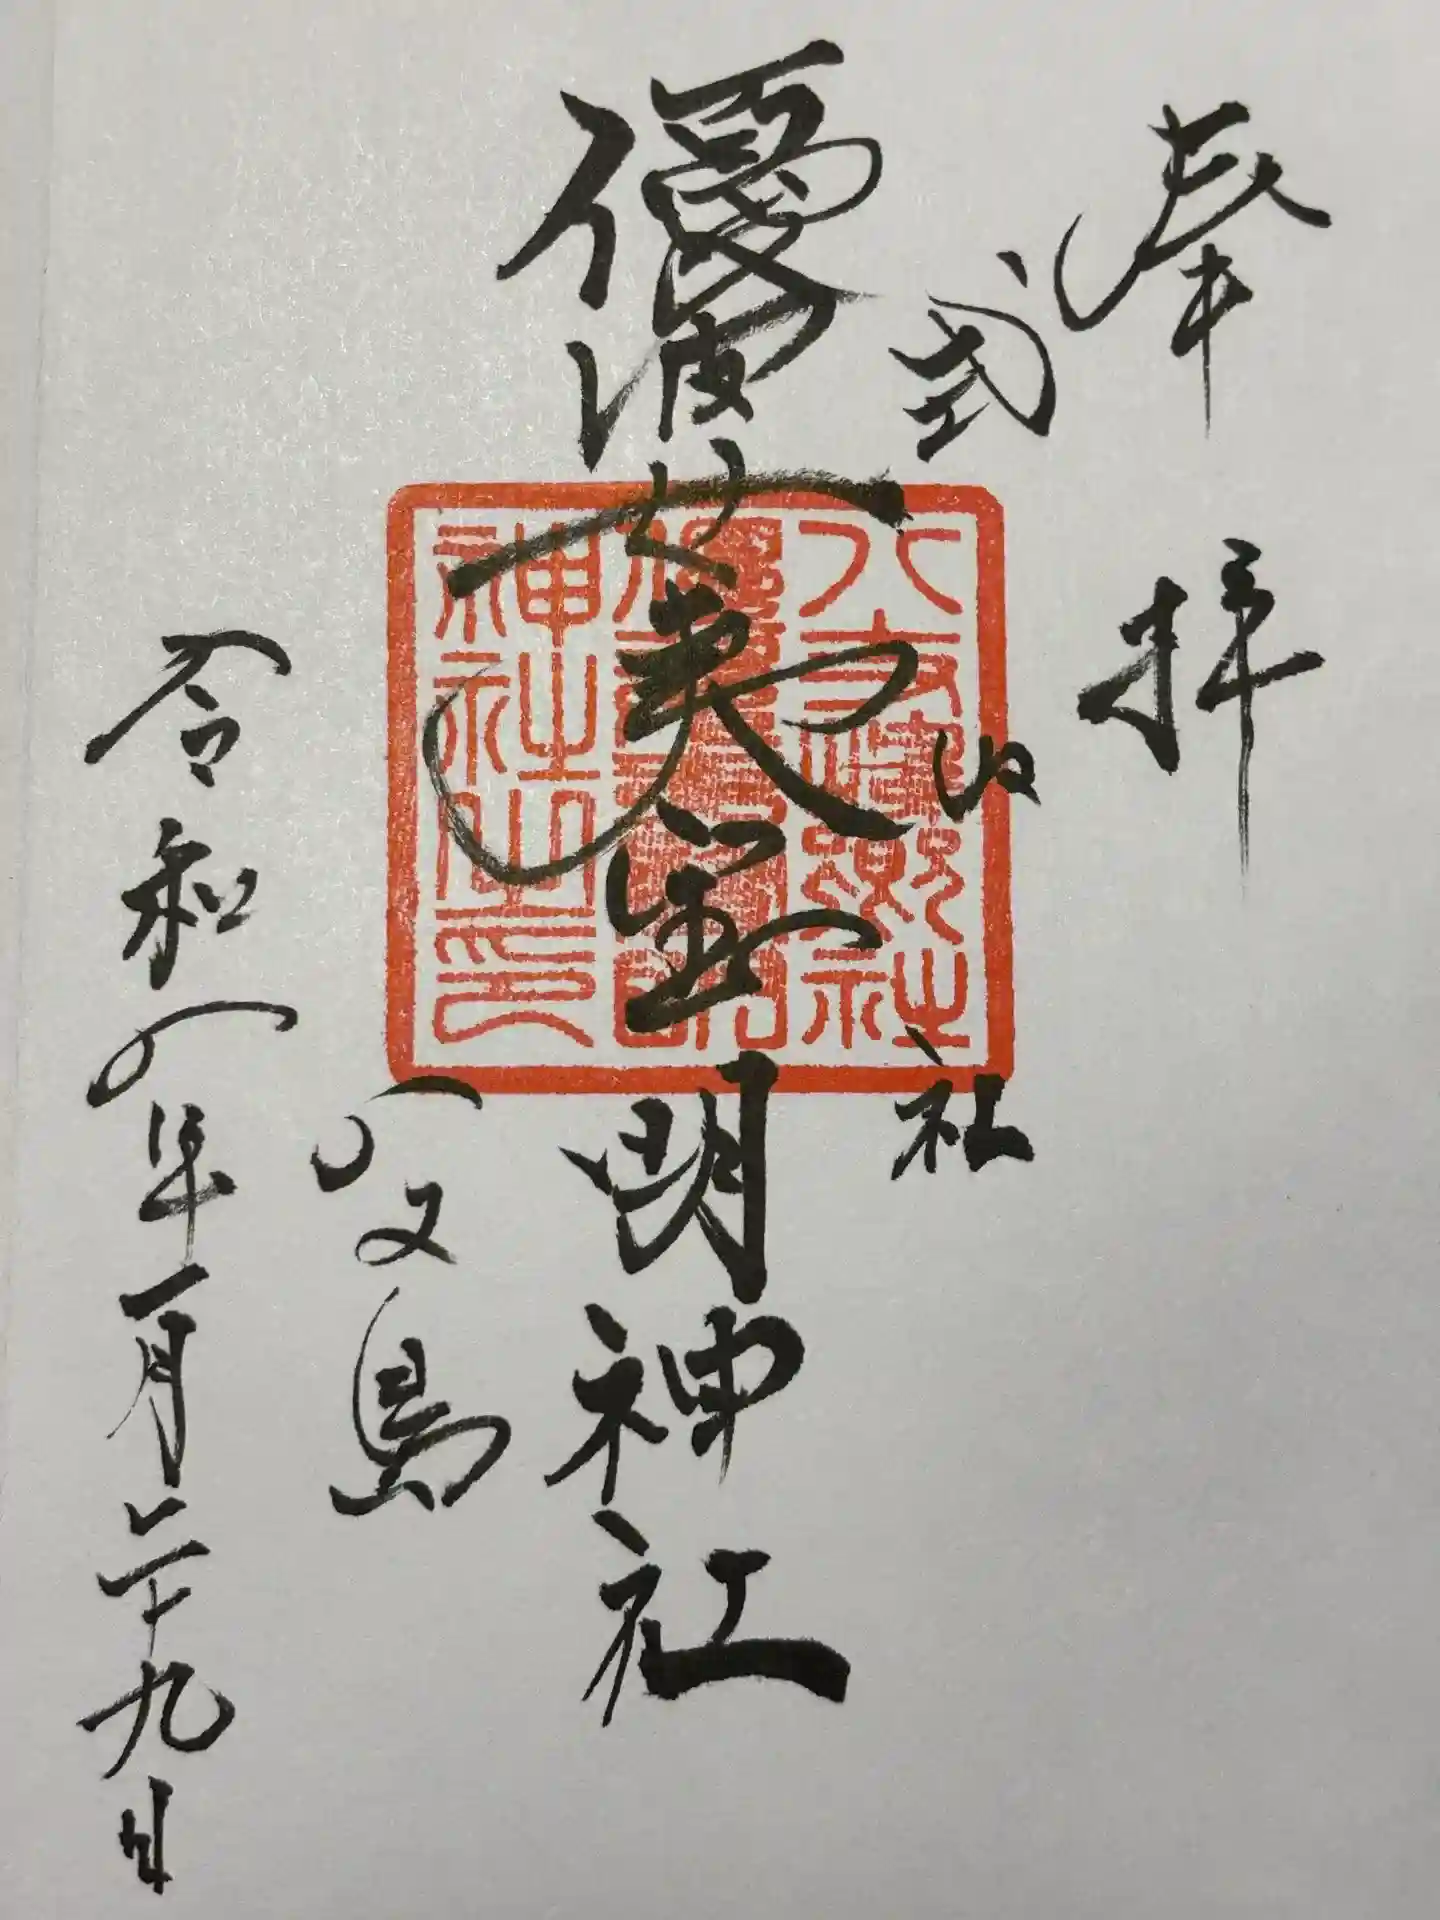 奉拝
式内社
優婆夷宝明神社
八丈島
令和八年一月二十九日
八丈嶋総社
神社之印